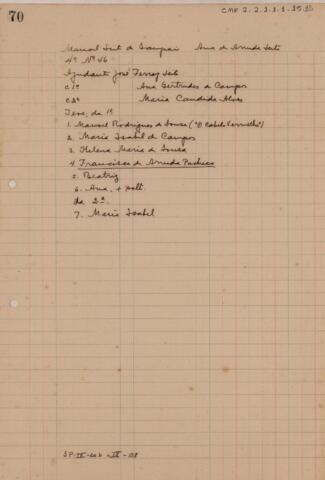 70
CMF 2.2.1.1.1.
Manoel Leite de Sampaio Ana de Arruda Leite
4º Nº 46
Ajudante José Ferraz Leite
c 1º Ana Gertrudes de Campos
c 2º Maria Candida Alves
Teve, da 1ª
1. Manoel Rodrigues de Sousa ("O Cabelo Vermelho")
2. Maria Isabel de Campos
3. Helena Maria de Sousa
4. Francisca de Arruda Pacheco
5. Beatriz
6. Ana, + solt.
da 2ª.
7. Maria Isabel